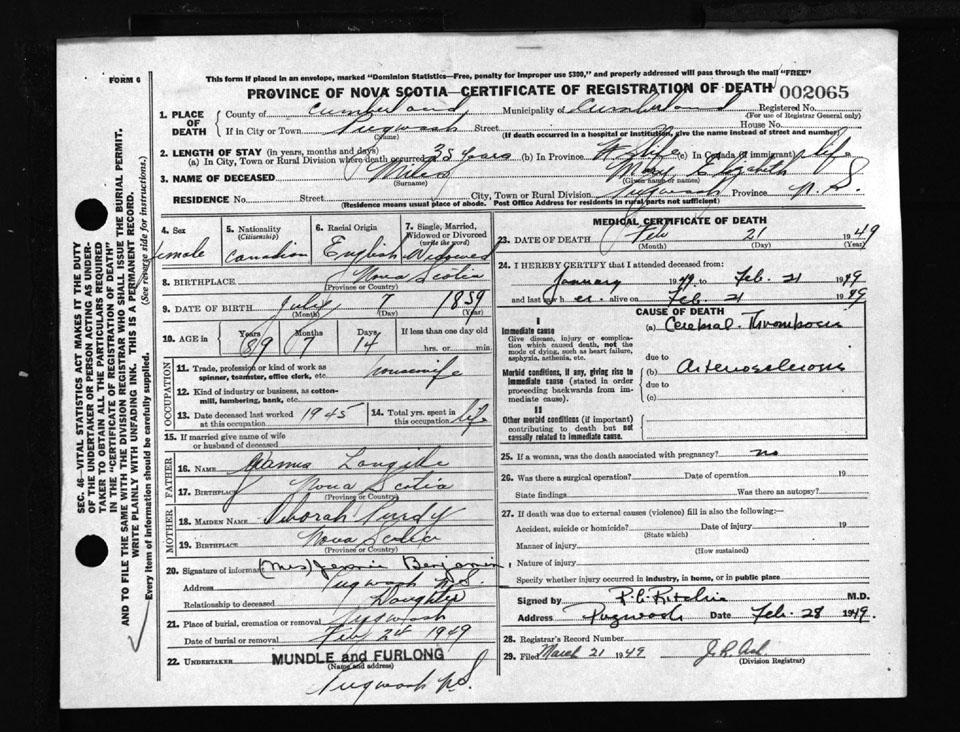 FORM 6
This form if placed in an envelope, marked "Dominion Statistics—Free, penalty for improper use $300," and properly addressed will pass through the mail "FREE"
PROVINCE OF NOVA SCOTIA—CERTIFICATE OF REGISTRATION OF DEATH
002065
1. PLACE OF DEATH
County of Cumberland Municipality of Cumberland Registered No.
(For use of Registrar General only)
If in City or Town Pugwash Street House No.
(Name) (If death occurred in a hospital or institution, give the name instead of street and number)
2. LENGTH OF STAY (in years, months and days)
(a) In City, Town or Rural Division where death occurred 35 years (b) In Province life (c) In Canada (if immigrant) life
3. NAME OF DECEASED Miles Mary Elizabeth
(Surname) (Given name or names)
RESIDENCE No. Street City, Town or Rural Division Pugwash Province N.S.
(Residence means usual place of abode. Post Office Address for residents in rural parts not sufficient)
4. Sex Female
5. Nationality (Citizenship) Canadian
6. Racial Origin English
7. Single, Married, Widowed or Divorced (write the word) Widowed
8. BIRTHPLACE Nova Scotia
(Province or Country)
9. DATE OF BIRTH July 7 1859
(Month) (Day) (Year)
10. AGE in Years 89 Months 7 Days 14 If less than one day old hrs. or min.
OCCUPATION
11. Trade, profession or kind of work as spinner, teamster, office clerk, etc. housewife
12. Kind of industry or business, as cotton-mill, lumbering, bank, etc.
13. Date deceased last worked at this occupation 1945
14. Total yrs. spent in this occupation life
15. If married give name of wife or husband of deceased
FATHER
16. NAME James
17. BIRTHPLACE Nova Scotia
(Province or Country)
MOTHER
18. MAIDEN NAME Deborah Purdy
19. BIRTHPLACE Nova Scotia
(Province or Country)
20. Signature of informant (Mrs) Jennie Benjamin
Address Pugwash N.S.
Relationship to deceased Daughter
21. Place of burial, cremation or removal Pugwash
Date of burial or removal Feb 24 1949
22. UNDERTAKER MUNDLE and FURLONG
(Name and address)
Pugwash N.S.
MEDICAL CERTIFICATE OF DEATH
23. DATE OF DEATH Feb 21 1949
(Month) (Day) (Year)
24. I HEREBY CERTIFY that I attended deceased from:
January 1949 to Feb. 21 1949
and last saw her alive on Feb. 21 1949
CAUSE OF DEATH
I
Immediate cause
Give disease, injury or complication which caused death, not the mode of dying, such as heart failure, asphyxia, asthenia, etc.
(a) Cerebral Thrombosis
due to
Morbid conditions, if any, giving rise to immediate cause (stated in order proceeding backwards from immediate cause).
(b) Arteriosclerosis
due to
(c)
II
Other morbid conditions (if important) contributing to death but not causally related to immediate cause.
25. If a woman, was the death associated with pregnancy? no
26. Was there a surgical operation? Date of operation 19
State findings Was there an autopsy?
27. If death was due to external causes (violence) fill in also the following:—
Accident, suicide or homicide? Date of injury 19
(State which)
Manner of injury
(How sustained)
Nature of injury
Specify whether injury occurred in industry, in home, or in public place
Signed by R.C. Ritchie M.D.
Address Pugwash Date Feb. 28 1949.
28. Registrar's Record Number
29. Filed March 21 1949 J. R. Ash
(Division Registrar)
SEC. 46—VITAL STATISTICS ACT MAKES IT THE DUTY
OF THE UNDERTAKER OR PERSON ACTING AS UNDER-
TAKER TO OBTAIN ALL THE PARTICULARS REQUIRED
IN THE "CERTIFICATE OF REGISTRATION OF DEATH"
AND TO FILE THE SAME WITH THE DIVISION REGISTRAR WHO SHALL ISSUE THE BURIAL PERMIT.
WRITE PLAINLY WITH UNFADING INK. THIS IS A PERMANENT RECORD.
Every item of information should be carefully supplied. (See reverse side for instructions.)